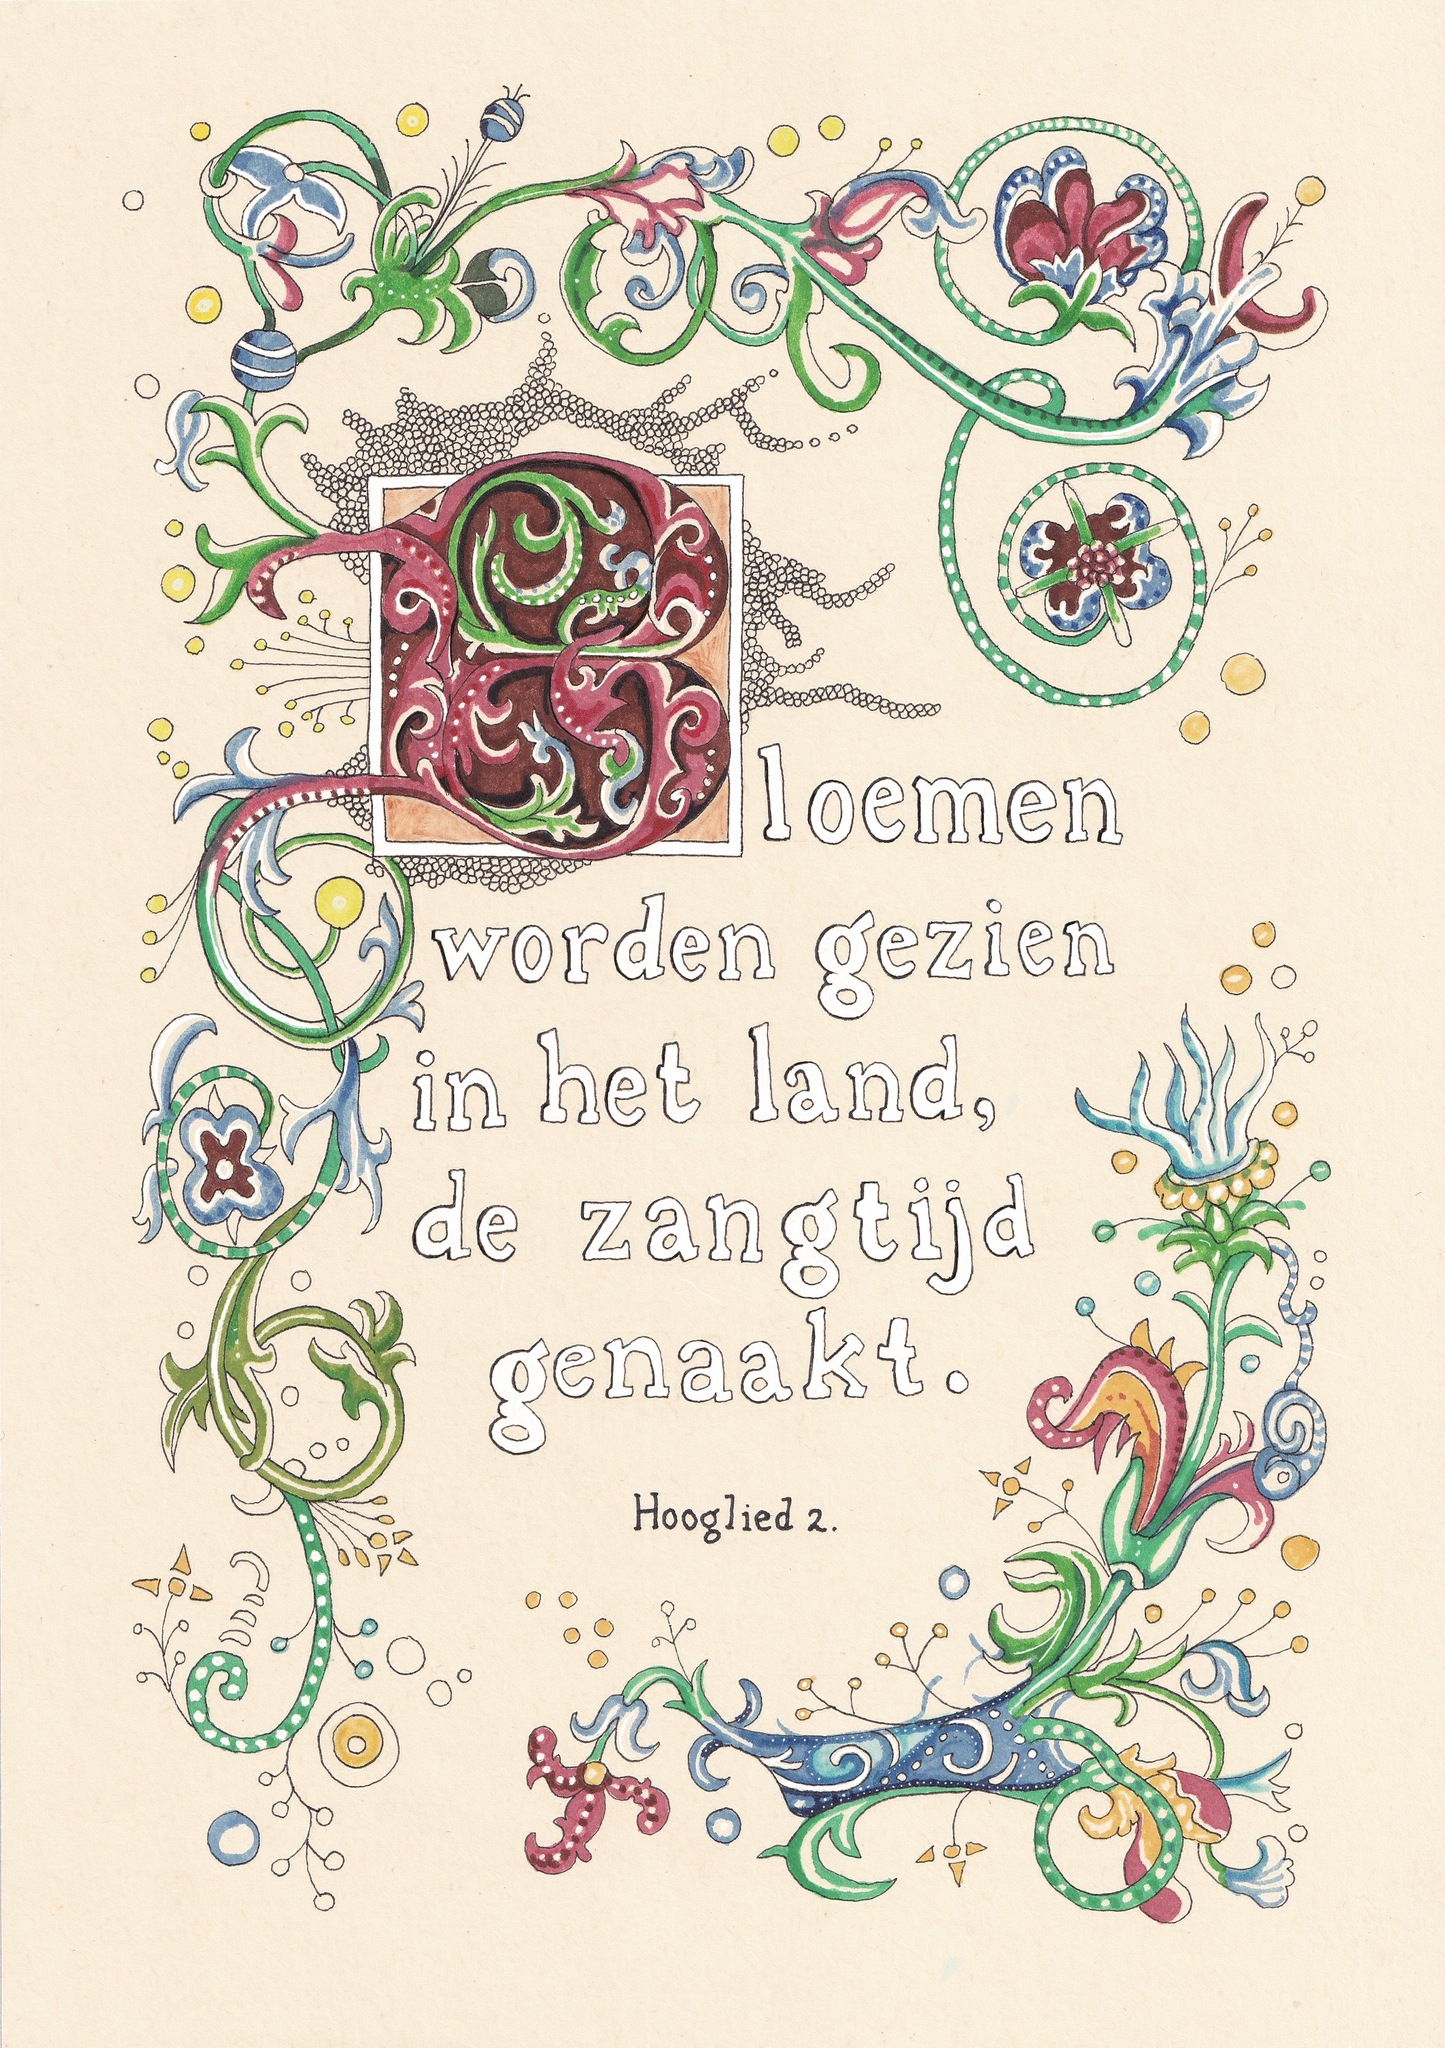 Bloemen
worden gezien
in het land,
de zangtijd
genaakt.
Hooglied 2.